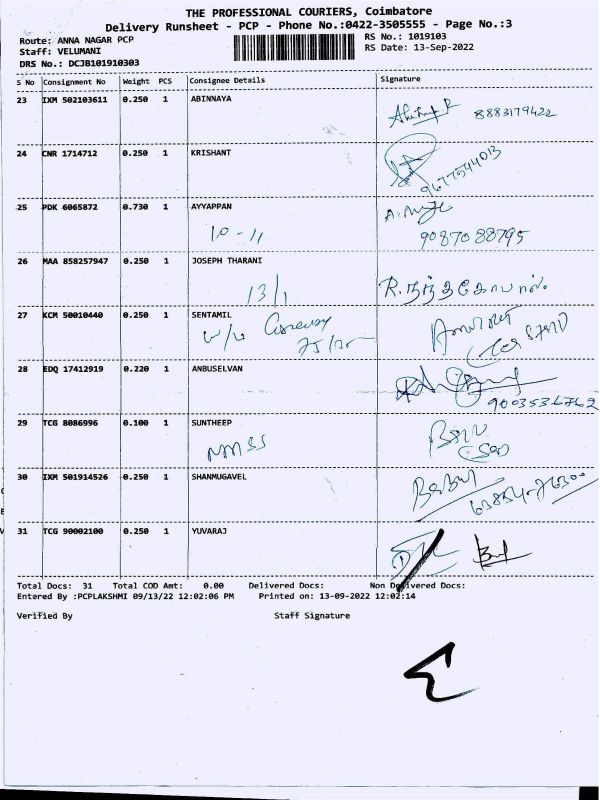 THE PROFESSIONAL COURIERS, Coimbatore
Delivery Runsheet - PCP - Phone No.:0422-3505555 - Page No.:3
Route: ANNA NAGAR PCP
RS No.: 1019103
Staff: VELUMANI
RS Date: 13-Sep-2022
DRS No.: DCJB101910303
S No Consignment No Weight PCS Consignee Details Signature
23 IXM 502103611 0.250 1 ABINNAYA
8883179422
24 CNR 1714712 0.250 1 KRISHANT
9677544013
25 PDK 6065872 0.730 1 AYYAPPAN
10-11 9087088795
26 MAA 858257947 0.250 1 JOSEPH THARANI
13/1 R.நந்தகோபால்
27 KCM 50010440 0.250 1 SENTAMIL
28 EDQ 17412919 0.220 1 ANBUSELVAN
9003536762
29 TCG 8086996 0.100 1 SUNTHEEP
30 IXM 501914526 0.250 1 SHANMUGAVEL
63854-76300
31 TCG 90002100 0.250 1 YUVARAJ
Total Docs: 31 Total COD Amt: 0.00 Delivered Docs: Non Delivered Docs:
Entered By :PCPLAKSHMI 09/13/22 12:02:06 PM Printed on: 13-09-2022 12:02:14
Verified By Staff Signature